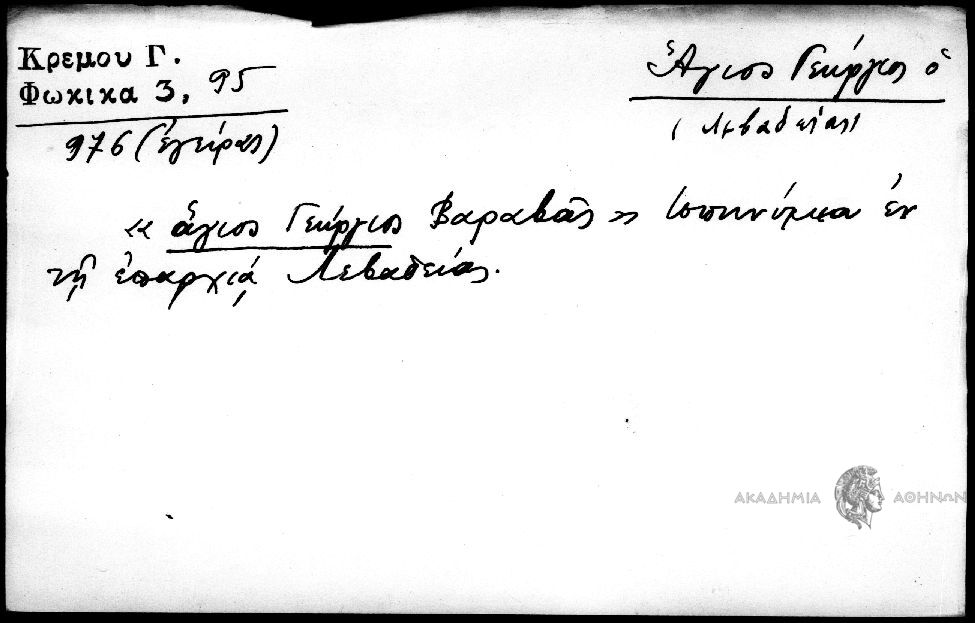 Κρεμου Γ.
Φωκικα 3, 95
976 (ἐγείρας)
Ἅγιος Γεώργιος ὁ
(Λεβαδείας)
« ἅγιος Γεώργιος Βαραβᾶς » ἐν
τῇ ἐπαρχίᾳ Λεβαδείας.
ΑΚΑΔΗΜΙΑ ΑΘΗΝΩΝ